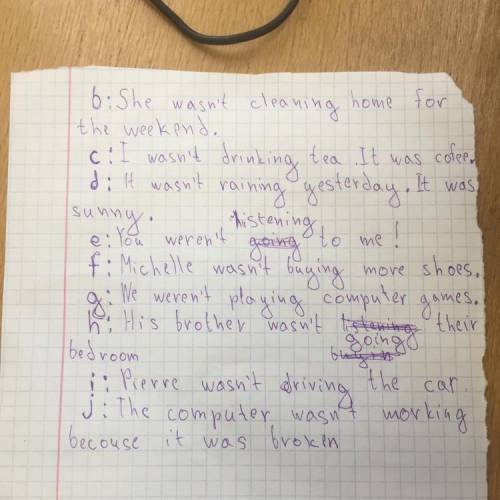 b: She wasn't cleaning home for
the weekend.
c: I wasn't drinking tea. It was cofee.
d: It wasn't raining yesterday. It was
sunny.
listening
e: You weren't going to me!
f: Michelle wasn't buying more shoes.
g: We weren't playing computer games.
h: His brother wasn't listening their
going
bedroom
i: Pierre wasn't driving the car.
j: The computer wasn't working
becouse it was broken